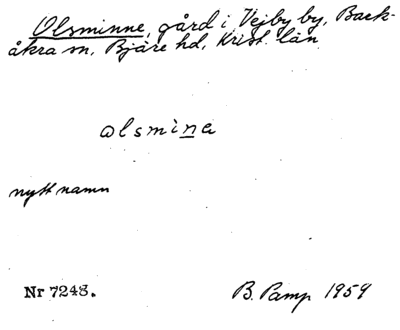 Olsminne, gård i Vejby by, Back-
åkra sn, Bjäre hd, Krist. län
olsmina
nytt namn
Nr 7248.
B. Pamp 1959